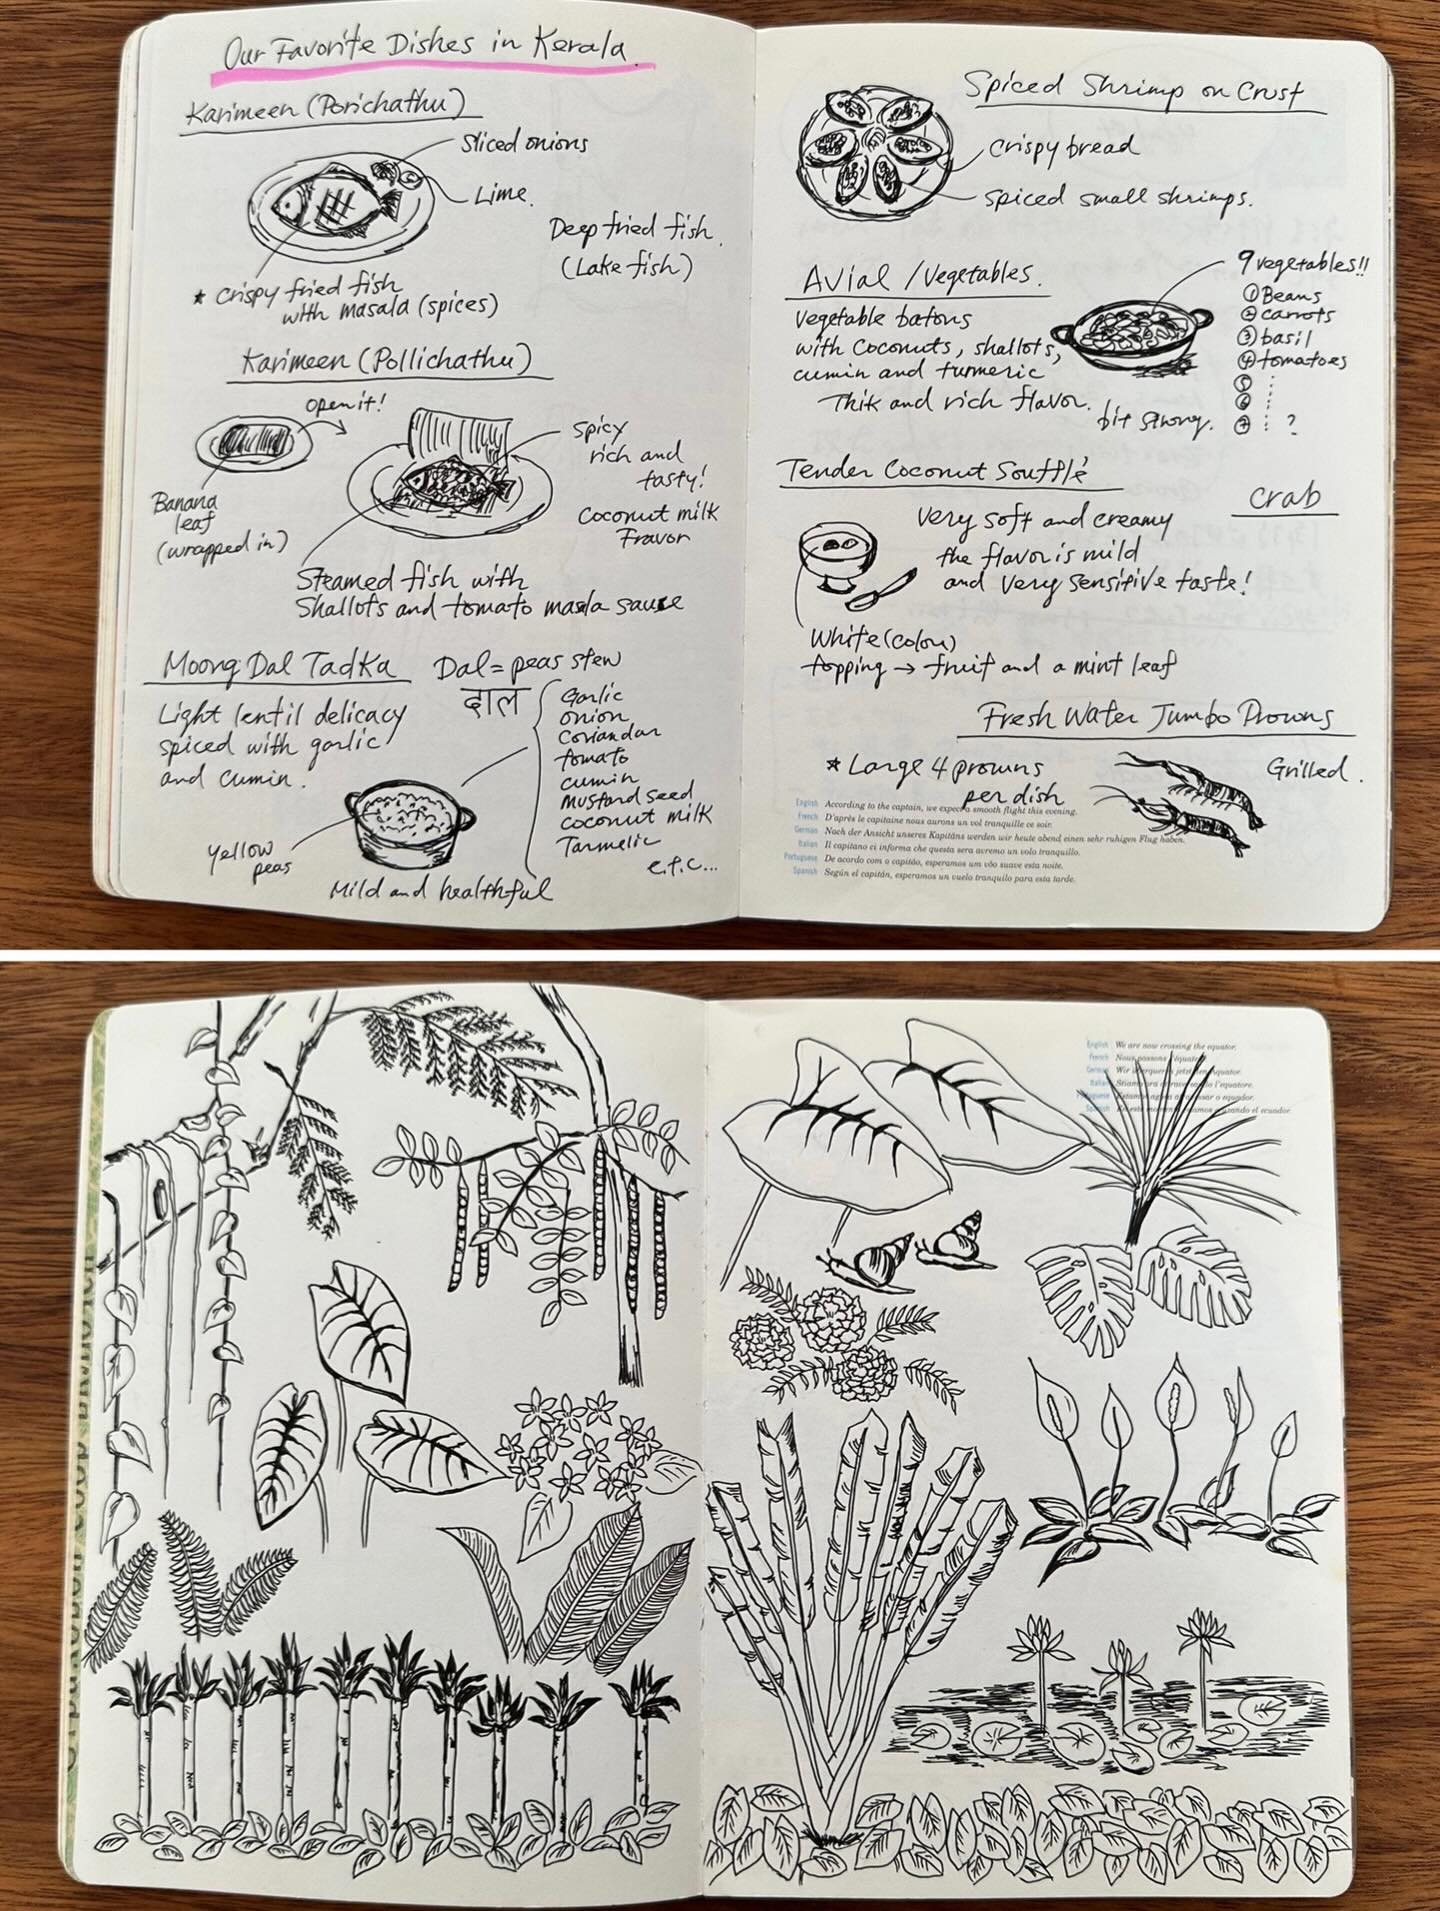 Our Favorite Dishes in Kerala.
Karimeen (Porichathu)
Sliced onions
Lime.
Deep fried fish.
(Lake fish)
* Crispy fried fish
with masala (spices)
Karimeen (Pollichathu)
open it!
Banana
leaf
(wrapped in)
Spicy
rich and
tasty!
Coconut milk
Fravor
Steamed fish with
Shallots and tomato masla sause
Moong Dal Tadka
Light lentil delicacy
spiced with garlic
and cumin.
Dal = peas stew
दाल
Garlic
onion
Coriandar
tomato
cumin
Mustard seed
coconut milk
Tarmelic
e.t.c...
Yellow
peas
Mild and healthful
Spiced Shrimp on Crust
crispy bread
spiced small shrimps.
Avial / Vegetables.
Vegetable batons
with Coconuts, shallots,
cumin and turmeric
Thik and rich flavor.
bit strong.
9 vegetables!!
① Beans
② carrots
③ basil
④ tomatoes
⑤ :
⑥ :
⑦ : ?
Tender Coconut Soufflé
Crab
Very soft and creamy
the flavor is mild
and very sensitive taste!
White (colou)
topping → fruit and a mint leaf
Fresh Water Jumbo Prowns
* Large 4 prowns
per dish
Grilled.
English According to the captain, we expect a smooth flight this evening.
French D'après le capitaine nous aurons un vol tranquille ce soir.
German Nach der Ansicht unseres Kapitäns werden wir heute abend einen sehr ruhigen Flug haben.
Italian Il capitano ci informa che questa sera avremo un volo tranquillo.
Portuguese De acordo com o capitão, esperamos um vôo suave esta noite.
Spanish Según el capitán, esperamos un vuelo tranquilo para esta tarde.
English We are now crossing the equator.
French Nous passons l'équateur.
German Wir überqueren jetzt den Äquator.
Italian Stiamo ora attraversando l'equatore.
Portuguese Estamos agora a passar o equador.
Spanish En este momento cruzando el ecuador.